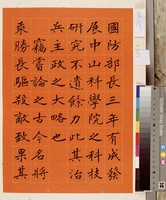 國防部長三年有成發
展中山科學院之科技
研究不遺餘力此其治
兵主政之大略也
竊嘗論之古今名將
乘勝長驅殺敵致果其